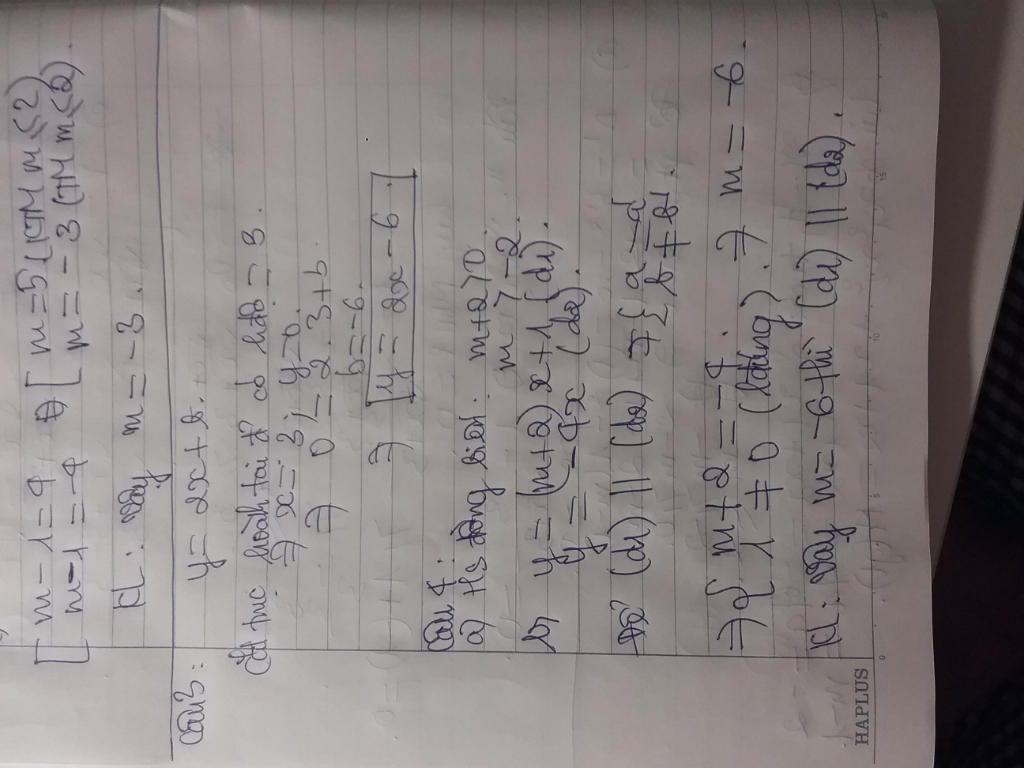 [ m - 1 = 4 ⇒ [ m = 5 (KTM m ≤ 2)
[ m - 1 = -4 [ m = -3 (TM m ≤ 2).
Kl: Vậy m = -3.
Câu 3: y = 2x + b.
Cắt trục hoành tại có hđộ = 3.
⇒ x = 3; y = 0.
⇒ 0 = 2.3 + b
b = -6.
⇒ y = 2x - 6.
Câu 4:
a) Hs đồng biến. m + 2 > 0.
m > -2.
b, y = (m + 2)x + 1 (d1).
y = -4x (d2).
Để (d1) // (d2) ⇒ { a = a'
b ≠ b'.
⇒ { m + 2 = -4.
1 ≠ 0 (lđ đúng). ⇒ m = -6.
Kl: Vậy m = -6 thì (d1) // (d2).
HAPLUS